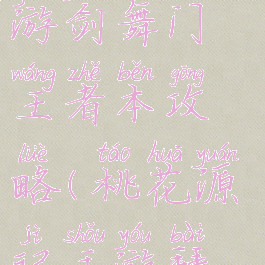 游剑舞门
wáng zhě běn gōng
王者本攻
lüè táo huā yuán
略(桃花源
jì shǒu yóu bài
记手游拜